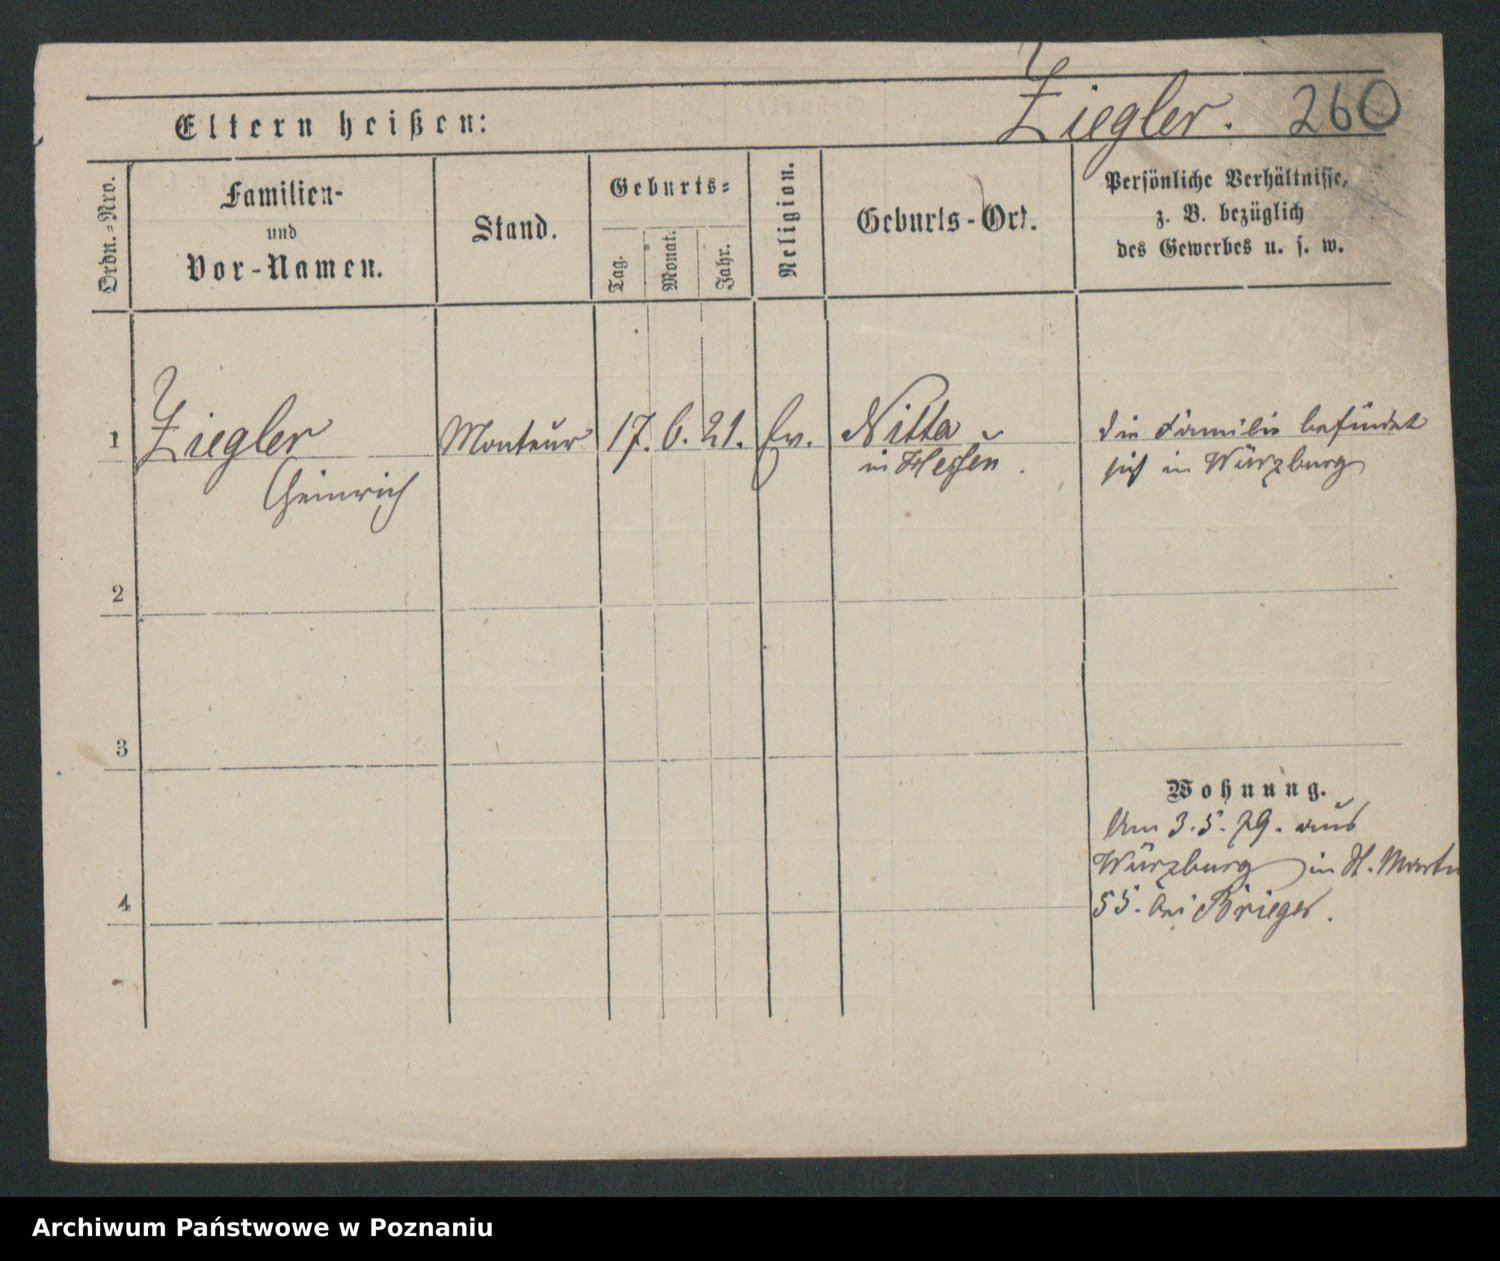 Eltern heißen:
Ziegler. 260
Ordn.-Nro.
Familien-
und
Vor-Namen.
Stand.
Geburts-
Tag.
Monat.
Jahr.
Religion.
Geburts-Ort.
Persönliche Verhältnisse,
z. B. bezüglich
des Gewerbes u. s. w.
1 Ziegler Monteur 17. 6. 21. Ev. Nitta die Familie befindet
Heinrich in Hessen. sich in Würzburg
2
3
Wohnung.
Am 3.5.79. aus
Würzburg in St. Martin
4 55. bei Brieger.
Archiwum Państwowe w Poznaniu